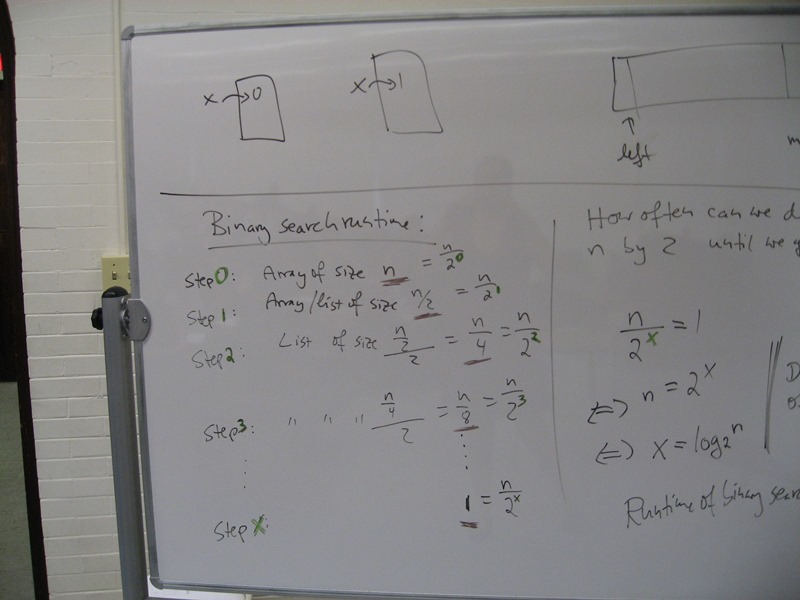 x → 0
x → 1
left
m
Binary search runtime:
Step 0: Array of size n = n/2^0
Step 1: Array/list of size n/2 = n/2^1
Step 2: List of size (n/2)/2 = n/4 = n/2^2
Step 3: " " " (n/4)/2 = n/8 = n/2^3
Step X: 1 = n/2^x
How often can we d
n by 2 until we g
n/2^x = 1
⇔ n = 2^x
⇔ x = log2 n
D
o
Runtime of binary sear